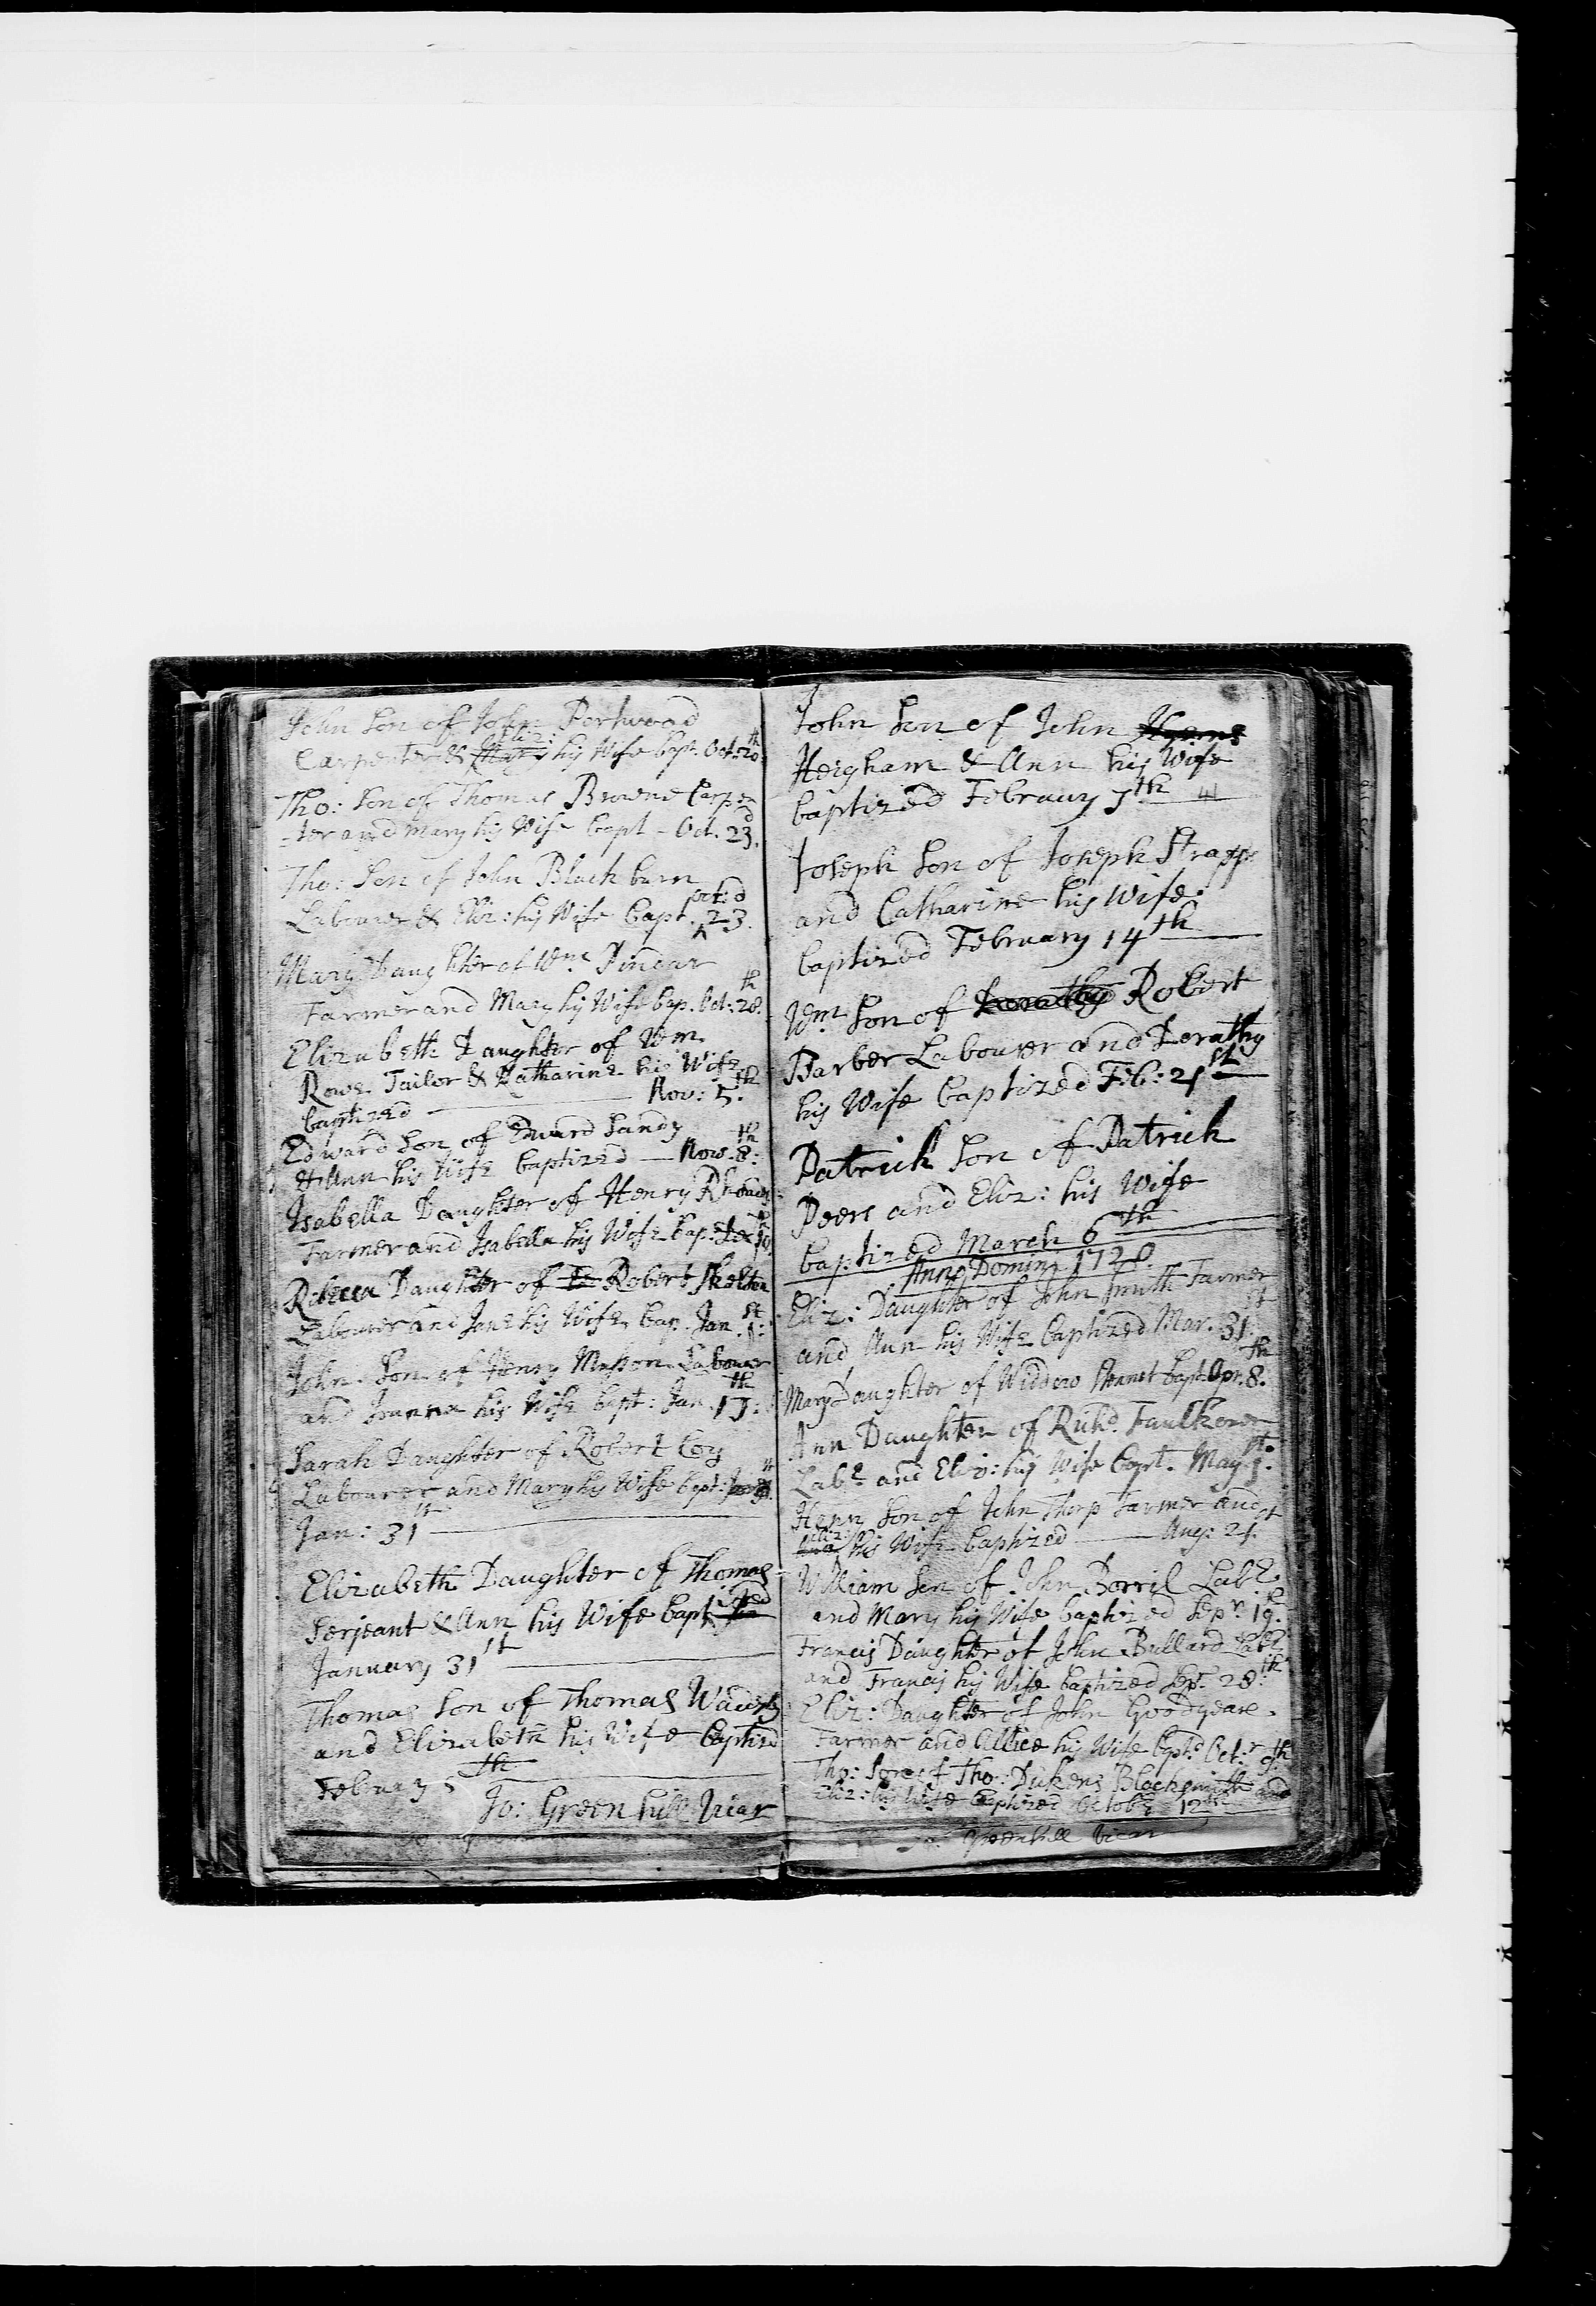 John Son of John Portwood
Carpenter & Eliz: his Wife Bapt. Oct: 20th
Tho: Son of Thomas Browne Carpen
-ter and Mary his Wife bapt - Oct. 23d.
Tho: Son of John Blackburn
Labourer & Eliz: his Wife bapt. Oct: 23d.
Mary Daughter of Wm. Pindar
Farmer and Mary his Wife bap. Oct: 28th.
Elizabeth Daughter of Wm.
Rowe Tailor & Katharine his Wife
baptized — Nov: 5th.
Edward Son of Edward Sandy
& Ann his Wife baptized — Nov. 8th:
Isabella Daughter of Henry Rhoades
Farmer and Isabella his Wife bap:
Ribecca Daughter of Robert Skelton
Labourer and Jane his Wife bap. Jan. 1st:
John Son of Henry Masson Labourer
and Joanna his Wife bapt: Jan. 17th:
Sarah Daughter of Robert Coy
Labourer and Mary his Wife bapt:
Jan: 31st —
Elizabeth Daughter of Thomas
Serjeant & Ann his Wife baptized
January 31st —
Thomas Son of Thomas
and Elizabeth his Wife baptized
Februay 5th
Jo: Greenhill Vicar
John Son of John
Heigham & Ann his Wife
baptized Februay 7th
Joseph Son of Joseph Strapp
and Catharine his Wife
baptized February 14th —
Wm Son of Dorathy Robert
Barber Labourer and Dorathy
his Wife baptized Feb: 21st —
Patrick Son of Patrick
Peers and Eliz: his Wife
baptized March 6th —
Anno Domini 1720.
Eliz: Daughter of John Smith Farmer
and Ann his Wife baptized Mar. 31st.
Mary Daughter of Widdow Bennet bapt. Apr. 8th.
Ann Daughter of Richd. Faulkener
Labr. and Eliz: his Wife bapt. May. 1st.
Henn Son of John Thorp Farmer and
Eliz: his Wife baptized — Aug: 21st.
William Son of John Dorril Labr.
and Mary his Wife baptized Sepr. 19th.
Francis Daughter of John Bullard Labr.
and Francis his Wife baptized Sepr. 28th.
Eliz: Daughter of John Goodgeare
Farmer and Allice his Wife bapt. Octr. 9th
Tho: Son of Tho: Dickens Blacksmith and
Eliz: his Wife baptized Octobr. 12th
Jo: Greenhill Vicar